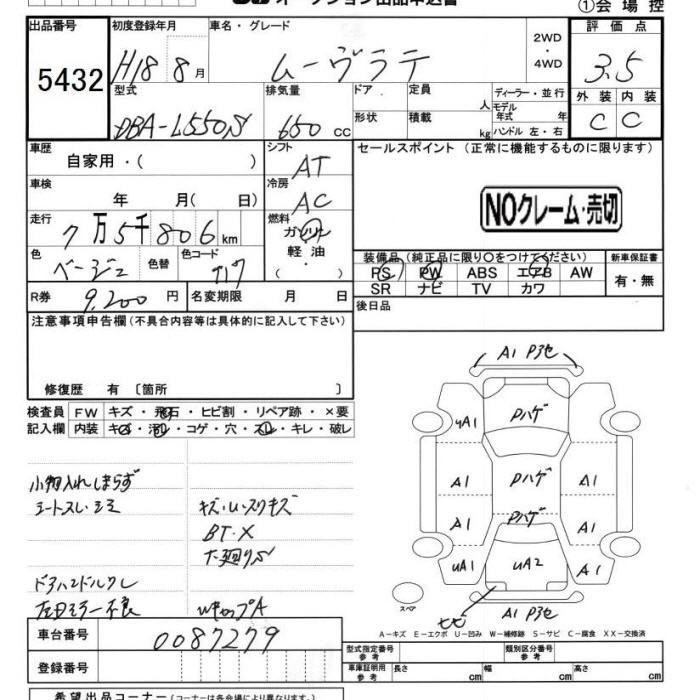 ①会場控
出品番号 初度登録年月 車名・グレード 2WD ・ 4WD 評価点
5432 H18 8月 ムーヴラテ 3.5
型式 排気量 ドア 定員 人 ディーラー・並行 外装 内装
DBA-L550S 650 CC 形状 積載 kg モデル年式 年 ハンドル 左・右 C C
車歴 自家用・( ) シフト AT セールスポイント (正常に機能するものに限ります)
車検 年 月( 日) 冷房 AC
NOクレーム・売切
走行 7万5千806km 燃料 ガソリン 軽油 ( )
色 ベージュ 色替 色コード T17
装備品 (純正品に限り○をつけてください) 新車保証書
PS PW ABS エアB AW 有・無
SR ナビ TV カワ
R券 9,200円 名変期限 月 日 後日品
注意事項申告欄 (不具合内容等は具体的に記入して下さい)
修復歴 有 〔箇所 〕
検査員 FW キズ・飛石・ヒビ割・リペア跡・×要
記入欄 内装 キズ・汚れ・コゲ・穴・スレ・キレ・破レ
小物入れしまらず
シートスレ・シミ キズ・U・スリキズ
BT・X
下廻りS
ドアハンドルクレ
左ドアミラー不良 WキャップA
A1 P3セ
UA1 Pハゲ
A1 Pハゲ A1
A1 Pハゲ
UA1 UA2 A1
ヒビ A1 P3セ
スペア
A-キズ E-エクボ U-凹み W-補修跡 S-サビ C-腐食 XX-交換済
車台番号 0087279
型式指定番号 参考 類別区分番号 参考
登録番号 車庫証明用 参考 長さ cm 幅 cm 高さ cm
希望出品コーナー